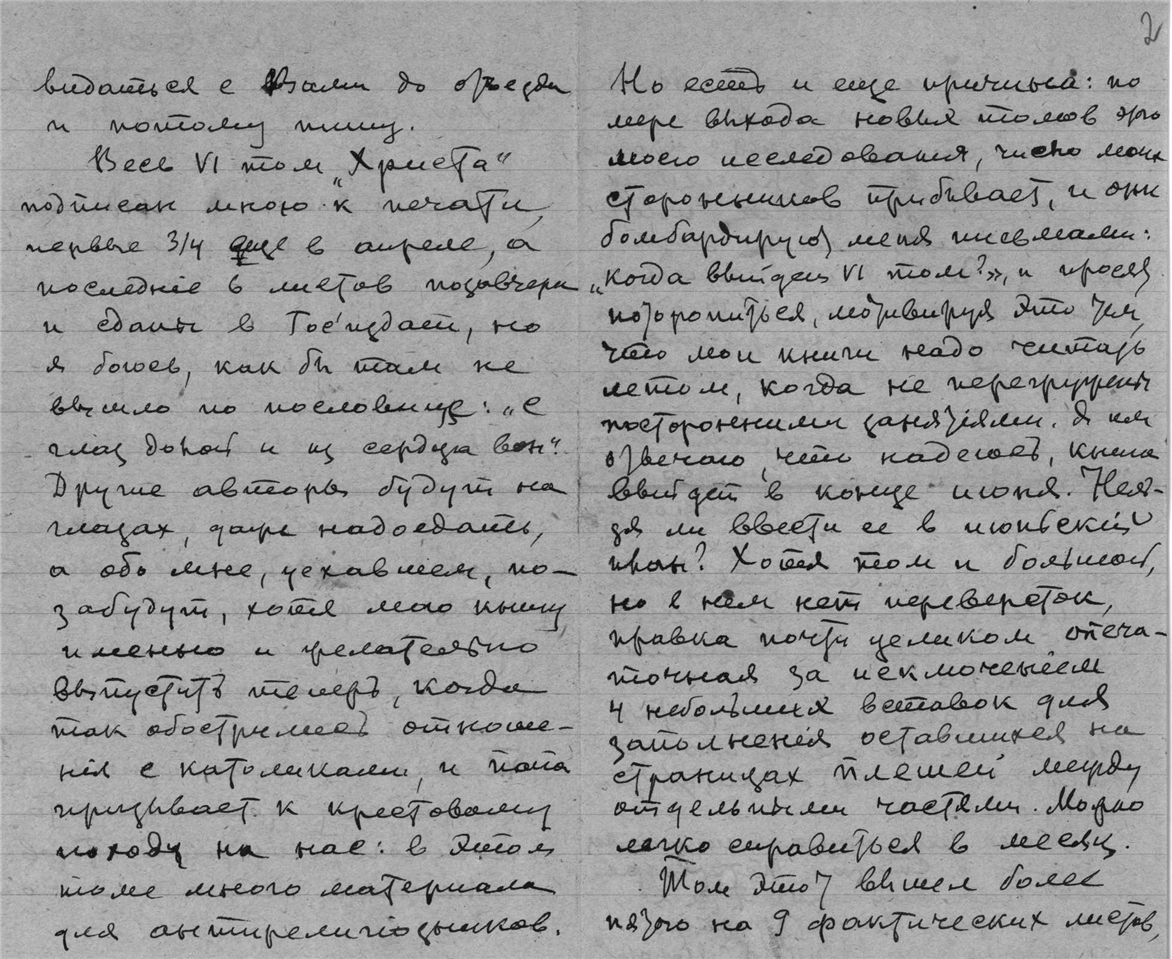 2
видаться с Вами до отъезда
и потому пишу.
Весь VI том „Христа"
подписан мною к печати,
первые 3/4 еще в апреле, а
последніе 6 листов позавчера
и сданы в Госиздат, но
я боюсь, как бы там не
вышло по пословице: „с
глаз долой и из сердца вон".
Другие авторы будут на
глазах, даже надоедать,
а обо мне, уехавшем, по-
забудут, хотя мою книгу
именно и желательно
выпустить теперь, когда
так обострились отноше-
нія с католиками, и папа
призывает к крестовому
походу на нас: в этом
томе много материала
для антирелигіозников.
Но есть и еще причина: по
мере выхода новых томов этого
моего исследования, число моих
сторонников прибывает, и они
бомбардируют меня письмами:
„когда выйдет VI том?», и просят
поторопиться, мотивируя это тем,
что мои книги надо читать
летом, когда не перегружены
посторонними занятіями. Я им
отвечаю, что надеюсь, книга
выйдет в конце июня. Нель-
зя ли ввести ее в июньскій
план? Хотя том и большой,
но в нем нет переверсток,
правка почти целиком опеча-
точная за исключеніем
4 небольших вставок для
заполненія оставшихся на
страницах плешей между
отдельными частями. Можно
легко справиться в месяц.
Том этот вышел более
пятого на 9 фактических листов,